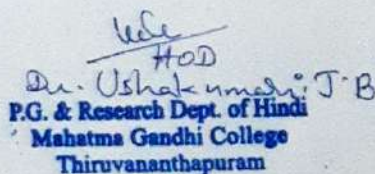 HOD
Dr. Ushakumari J B
P.G. & Research Dept. of Hindi
Mahatma Gandhi College
Thiruvananthapuram